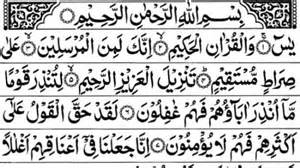 بِسْمِ اللّٰهِ الرَّحْمٰنِ الرَّحِيْمِ
يٰسٓ ۝ وَالْقُرْاٰنِ الْحَكِيْمِ ۝ اِنَّكَ لَمِنَ الْمُرْسَلِيْنَ ۝ عَلٰى
صِرَاطٍ مُّسْتَقِيْمٍ ۝ تَنْزِيْلَ الْعَزِيْزِ الرَّحِيْمِ ۝ لِتُنْذِرَ قَوْمًا
مَّاۤ اُنْذِرَ اٰبَآؤُهُمْ فَهُمْ غٰفِلُوْنَ ۝ لَقَدْ حَقَّ الْقَوْلُ عَلٰٓى
اَكْثَرِهِمْ فَهُمْ لَا يُؤْمِنُوْنَ ۝ اِنَّا جَعَلْنَا فِيْۤ اَعْنَاقِهِمْ اَغْلٰلًا